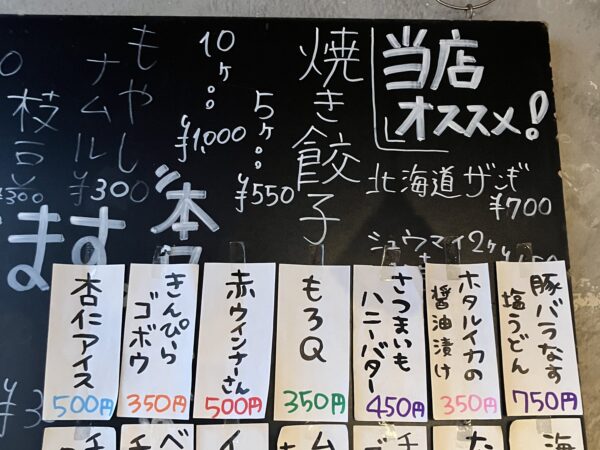 当店
オススメ!
北海道ザンギ
¥700
シュウマイ2ヶ
焼き餃子
5ヶ
¥550
10ヶ
¥1,000
もやし
ナムル
¥300
枝豆
¥300
本
ます
豚バラなす
塩うどん
750円
ホタルイカの
醤油漬け
350円
さつまいも
ハニーバター
450円
もろQ
350円
赤ウインナーさん
500円
きんぴら
ゴボウ
350円
杏仁アイス
500円